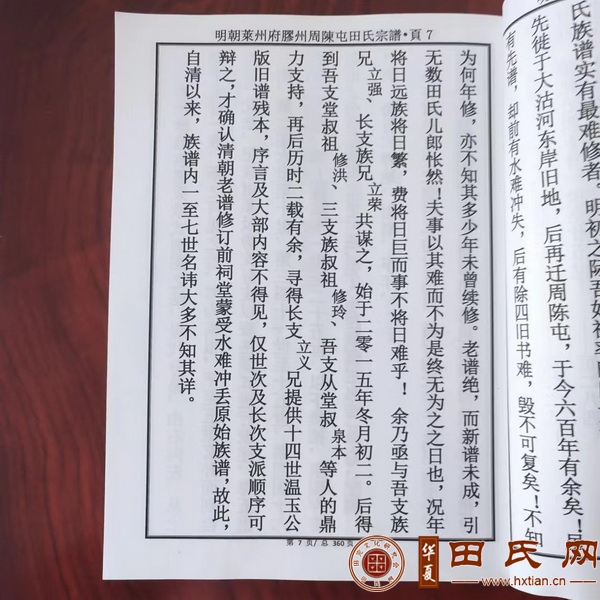 明朝莱州府膠州周陳屯田氏宗譜·頁7
氏族谱实有最难修者。明初之际吾始祖
先徙于大沽河东岸旧地，后再迁周陈屯，于今六百年有余矣！
有先谱，却前有水难冲失，后有除四旧书难，毁不可复矣！不知
为何年修，亦不知其多少年未曾续修。老谱绝，而新谱未成，引
无数田氏儿郎怅然！夫事以其难而不为是终无为之之日也，况年
将日远族将日繁，费将日巨而事不将日难乎！余乃亟与吾支族
兄立强、长支族兄立荣共谋之，始于二零一五年冬月初二。后得
到吾支堂叔祖修洪、三支族叔祖修玲、吾支从堂叔泉本等人的鼎
力支持，再后历时二载有余，寻得长支立义兄提供十四世温玉公
版旧谱残本，序言及大部内容不得见，仅世次及长次支派顺序可
辩之，才确认清朝老谱修订前祠堂蒙受水难冲丢原始族谱，故此，
自清以来，族谱内一至七世名讳大多不知其详。
第 7 页/ 总 360 页
华夏
田氏网
www.hxtian.cn